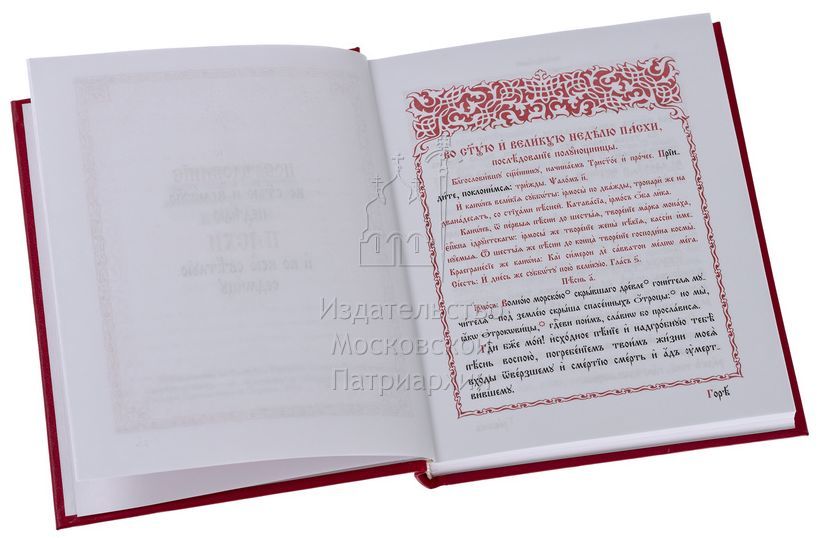 Во ст҃ꙋ́ю и҆ вели́кꙋю недѣ́лю па́схи,
послѣ́дованїе полꙋ́нощницы.
Бл҃гослови́вшꙋ сщ҃е́нникꙋ, начина́емъ Трист҃о́е и҆ про́чее. Прїи-
ди́те, поклони́мсѧ: три́жды. Ѱало́мъ н҃.
И҆ кано́нъ вели́кїѧ сꙋббѡ́ты: і҆рмосы̀ по два́жды, тропари́ же на
двана́десѧть, со стїха́ми пѣ́сней. Катава́сїа, і҆рмо́съ
Кано́нъ, ѿ пе́рвыѧ пѣ́сни до шесты́ѧ, творе́нїе ма́рка мона́ха,
є҆пі́скопа і҆дрꙋ́нтскагѡ: і҆рмосы́ же творе́нїе жены̀ нѣ́кїѧ, кассі́и и҆ме-
нꙋ́емыѧ. Ѿ шесты́ѧ же пѣ́сни до конца̀ творе́нїе господи́на космы̀.
Краегране́сїе же кано́на: Каѝ си́мерон дѐ са́вватон ме́лпѡ ме́га.
Сі́есть: И҆ дне́сь же сꙋббѡ́тꙋ пою̀ вели́кꙋю. Гла́съ ѕ҃.
Пѣ́снь а҃.
І҆рмо́съ: Волно́ю морско́ю скры́вшаго дре́вле гони́телѧ мꙋ-
чи́телѧ под̾ земле́ю скры́ша спасе́нныхъ ѻ҆́троцы: но мы̀,
ꙗ҆́кѡ ѻ҆трокови̑цы, гдⷭ҇еви пои́мъ, сла́внѡ бо просла́висѧ.
Гдⷭ҇и бж҃е мо́й! и҆схо́дное пѣ́нїе и҆ надгро́бнꙋю тебѣ̀
пѣ́снь воспою̀, погребе́нїемъ твои́мъ жи́зни моеѧ̀
вхо́ды ѿве́рзшемꙋ и҆ сме́ртїю сме́рть и҆ а҆́дъ ᲂу҆мерт-
ви́вшемꙋ.
Горѣ̀
Издательство
Московской
Патриархии